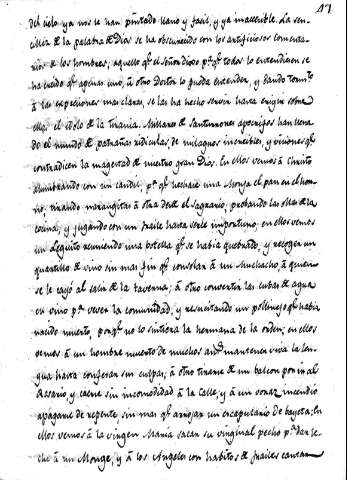 17
del cielo ya nos le han pintado llano y facil, y ya inaccesible. La sen-
cillez de la palabra de Dios se ha obscurecido con los artificiosos comenta-
rios de los hombres; aquello qe. el Señor dixo pa. qe. todos lo entendiesen se
ha creido qe. apenas uno, û otro Doctor lo pueda entender, y dando
â las expresiones mas claras, se las ha hecho servir para erigir sobre
ellas el idolo de la tirania. Millares de Santurrones apocrifos han llena-
do el mundo de patrañas ridiculas, de milagros increibles, y visiones qe.
contradicen la magestad de nuestro gran Dios. En ellos vemos â Christo
alumbrando con un candil, pa. qe. hechase una Monja el pan en el hor-
no, tirando naranjitas â otra desde el Sagrario, probando las ollas de la
cocina, y jugando con un fraile hasta serle importuno; en ellos vemos
un Leguito reuniendo una botella qe. se habia quebrado, y recoger un
quartillo de vino sin mas fin qe. consolar â un Muchacho, â quien
se le cayó al salir de la taverna; â otro convertir las cubas de agua
en vino pa. bever la comunidad, y resucitando un pollinejo qe. habia
nacido muerto, porqe. no lo sintiera la hermana de la orden; en ellos
vemos â un hombre muerto de muchos mantener viva la len-
gua hasta confesar sus culpas; â otro tirarse de un balcon por ir al
Rosario, y caerse sin incomodidad â la calle, y â un voraz incendio
apagarse de repente, sin mas qe. arrojar un escapulario de bayeta; En
ellos vemos â la Virgen Maria sacar su virginal pecho pa. dar le-
che â un Monge, y â los Angeles con habitos de frailes cantar